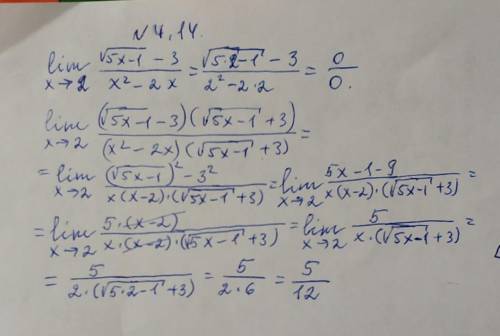 №4.14.
lim x→2 (√(5x-1) - 3)/(x² - 2x) = (√(5·2-1) - 3)/(2² - 2·2) = 0/0.
lim x→2 ((√(5x-1) - 3)(√(5x-1) + 3))/((x² - 2x)(√(5x-1) + 3)) =
= lim x→2 ((√(5x-1))² - 3²)/(x(x-2)·(√(5x-1) + 3)) = lim x→2 (5x-1-9)/(x(x-2)·(√(5x-1) + 3)) =
= lim x→2 (5·(x-2))/(x·(x-2)·(√(5x-1) + 3)) = lim x→2 5/(x·(√(5x-1) + 3)) =
= 5/(2·(√(5·2-1) + 3)) = 5/(2·6) = 5/12